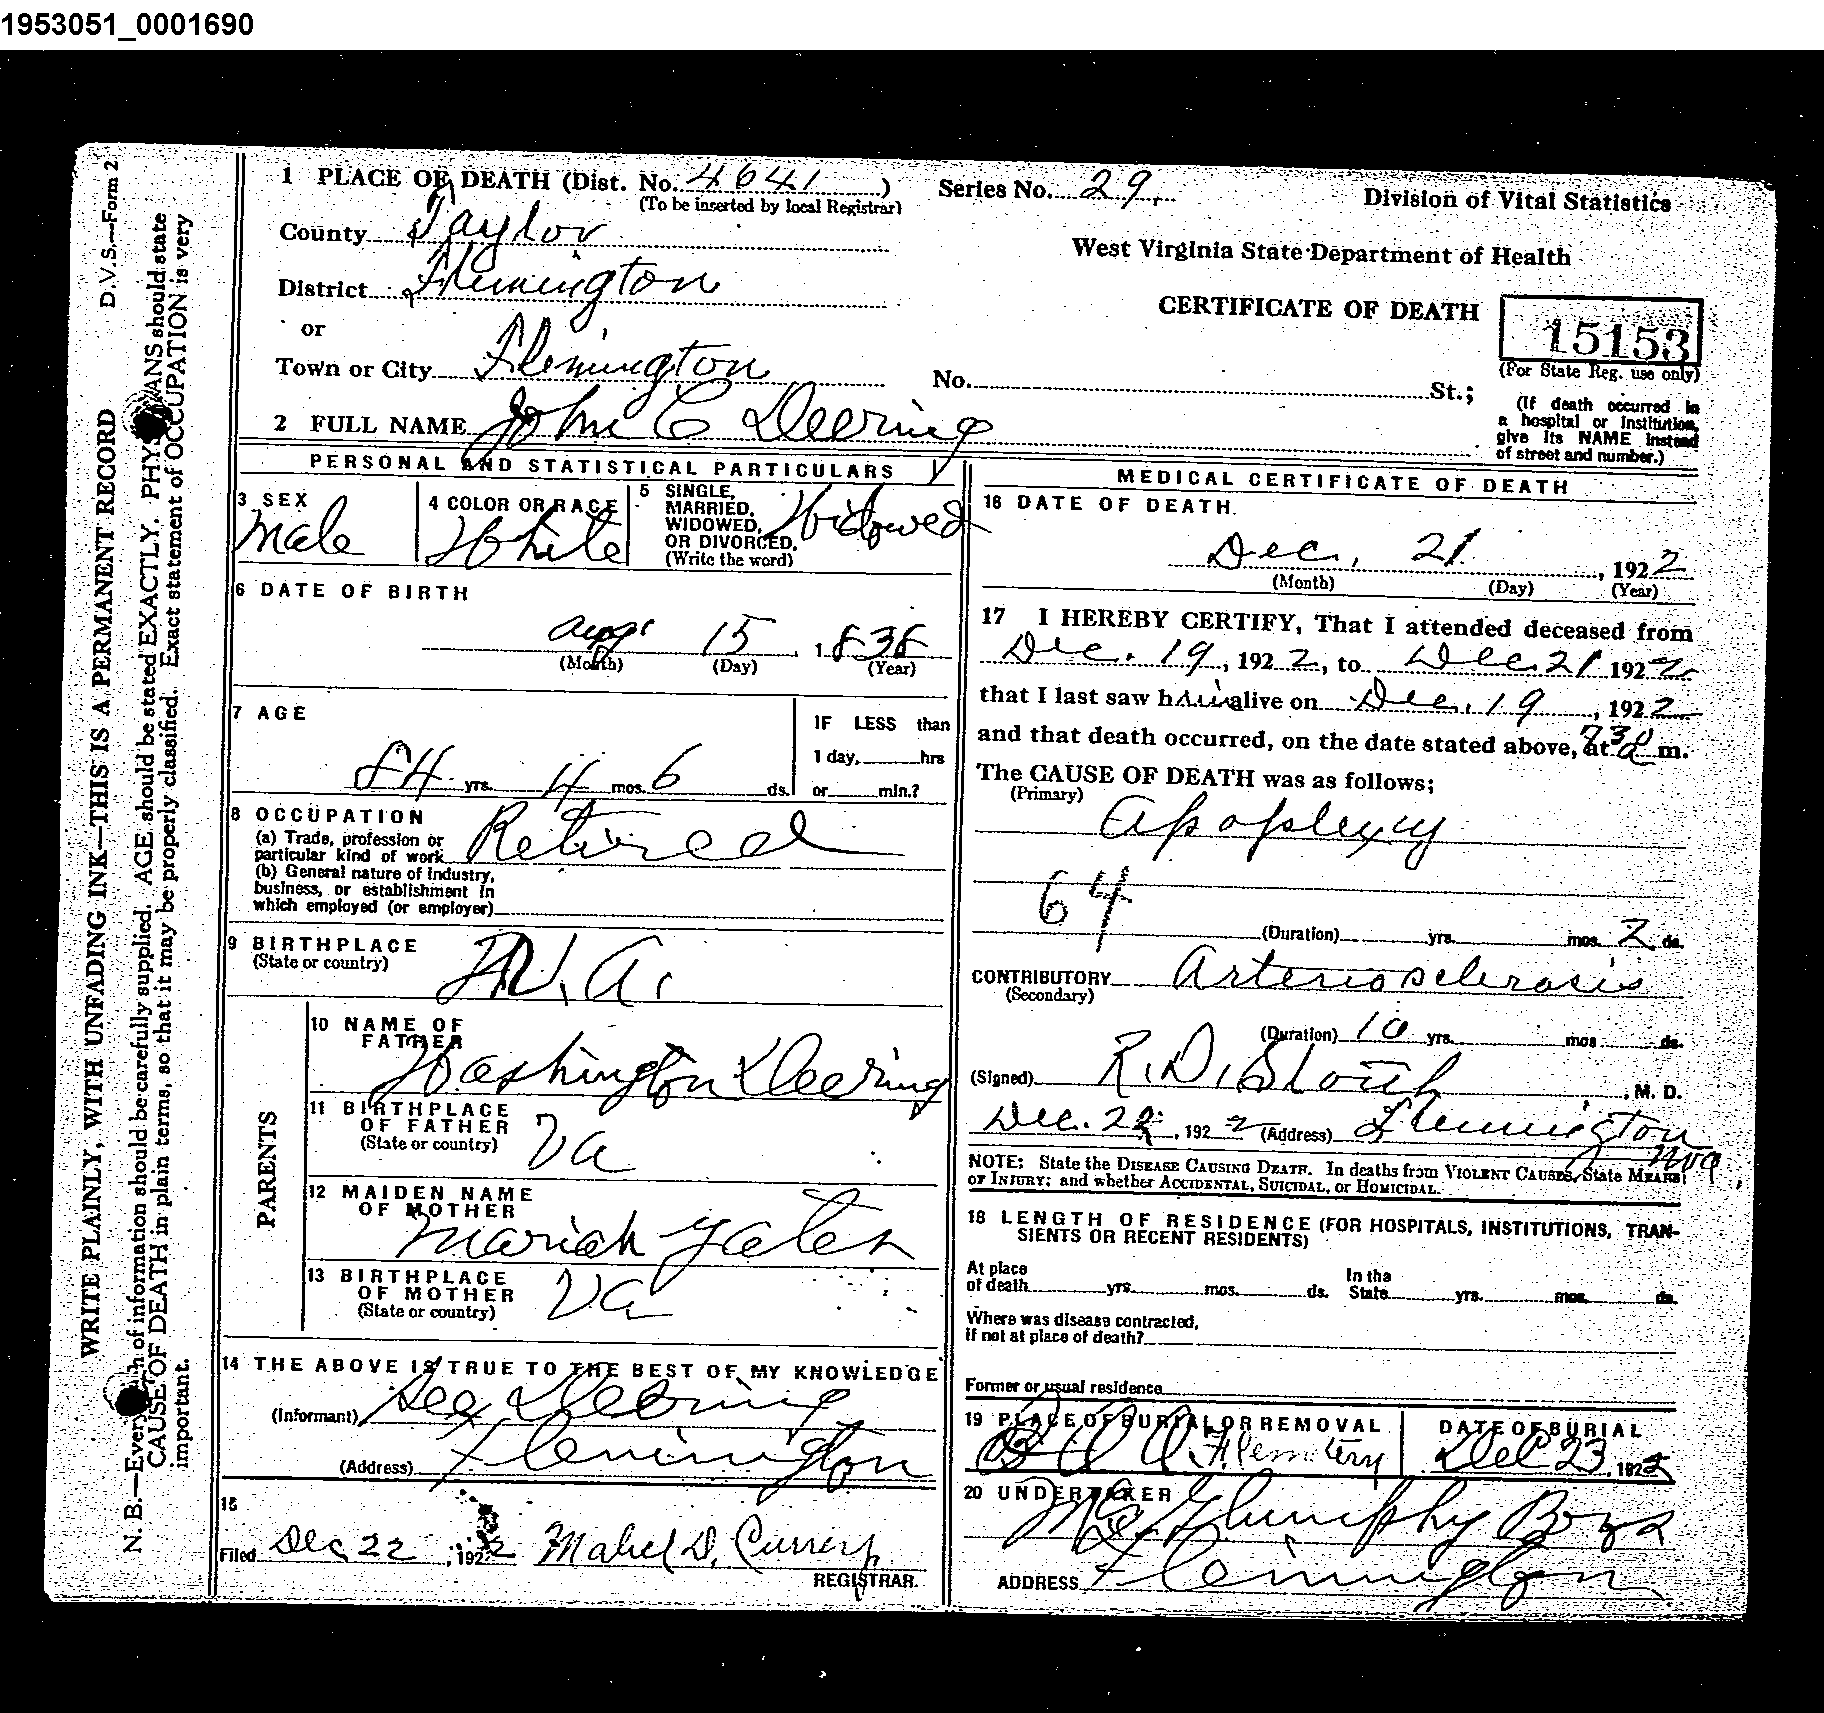 1953051_0001690
D.V.S.—Form 2
WRITE PLAINLY, WITH UNFADING INK—THIS IS A PERMANENT RECORD
N. B.—Every of information should be carefully supplied. AGE should be stated EXACTLY. PHYSICIANS should state
CAUSE OF DEATH in plain terms, so that it may be properly classified. Exact statement of OCCUPATION is very
important.
1 PLACE OF DEATH (Dist. No. 4641)
(To be inserted by local Registrar)
Series No. 29.
Division of Vital Statistics
County Taylor
West Virginia State Department of Health
District Flemington
CERTIFICATE OF DEATH
15153
(For State Reg. use only)
or
Town or City Flemington
No. St.;
(If death occurred in
a hospital or institution,
give its NAME instead
of street and number.)
2 FULL NAME John C Deering
PERSONAL AND STATISTICAL PARTICULARS
3 SEX
Male
4 COLOR OR RACE
White
5 SINGLE,
MARRIED,
WIDOWED,
OR DIVORCED.
(Write the word)
Widowed
6 DATE OF BIRTH
Aug. 15, 1838
(Month) (Day) (Year)
7 AGE
84 yrs. 4 mos. 6 ds.
IF LESS than
1 day, hrs
or min.?
8 OCCUPATION
(a) Trade, profession or
particular kind of work Retired
(b) General nature of industry,
business, or establishment in
which employed (or employer)
9 BIRTHPLACE
(State or country)
PARENTS
10 NAME OF
FATHER
Washington Deering
11 BIRTHPLACE
OF FATHER
(State or country) Va
12 MAIDEN NAME
OF MOTHER
Mariah Yates
13 BIRTHPLACE
OF MOTHER
(State or country) Va
14 THE ABOVE IS TRUE TO THE BEST OF MY KNOWLEDGE
(Informant) Deering
(Address) Flemington
15
Filed Dec 22, 1922 Mabel D. Curry
REGISTRAR.
MEDICAL CERTIFICATE OF DEATH
16 DATE OF DEATH.
Dec. 21, 1922
(Month) (Day) (Year)
17 I HEREBY CERTIFY, That I attended deceased from
Dec. 19, 1922, to Dec. 21 1922
that I last saw him alive on Dec. 19, 1922
and that death occurred, on the date stated above, at 730 m.
The CAUSE OF DEATH was as follows;
(Primary)
Apoplexy
64
(Duration) yrs. mos. 2 ds.
CONTRIBUTORY Arteriosclerosis
(Secondary)
(Duration) 10 yrs. mos. ds.
(Signed) R. D. , M. D.
Dec. 22, 1922 (Address) Flemington
NOTE: State the DISEASE CAUSING DEATH. In deaths from VIOLENT CAUSES, State MEANS
OF INJURY; and whether ACCIDENTAL, SUICIDAL, or HOMICIDAL.
18 LENGTH OF RESIDENCE (FOR HOSPITALS, INSTITUTIONS, TRAN-
SIENTS OR RECENT RESIDENTS)
At place
of death yrs. mos. ds.
In the
State yrs. mos. ds.
Where was disease contracted,
if not at place of death?
Former or usual residence
19 PLACE OF BURIAL OR REMOVAL
DATE OF BURIAL
Dec 23, 1922
20 UNDERTAKER
ADDRESS Flemington